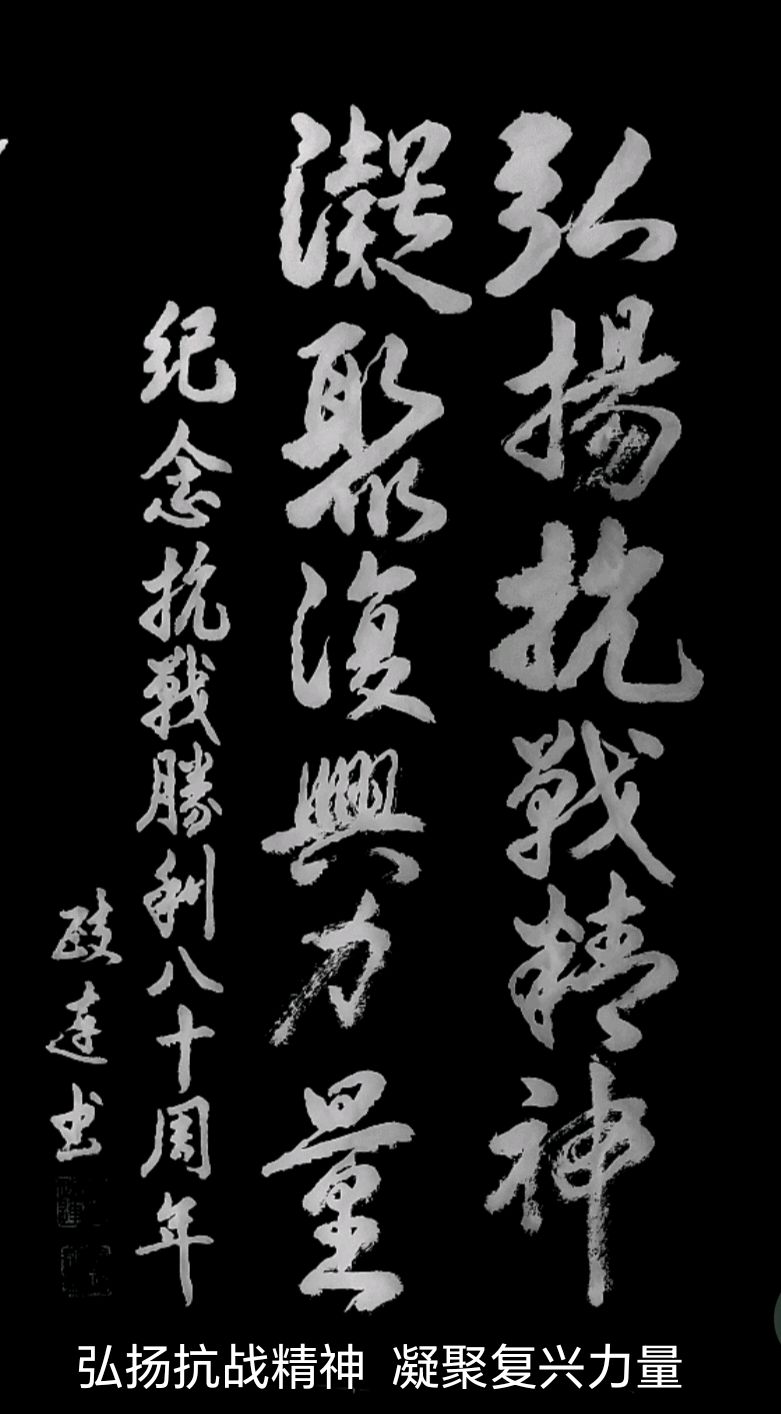 弘揚抗戰精神
凝聚復興力量
纪念抗戰勝利八十周年
政達书
弘扬抗战精神 凝聚复兴力量